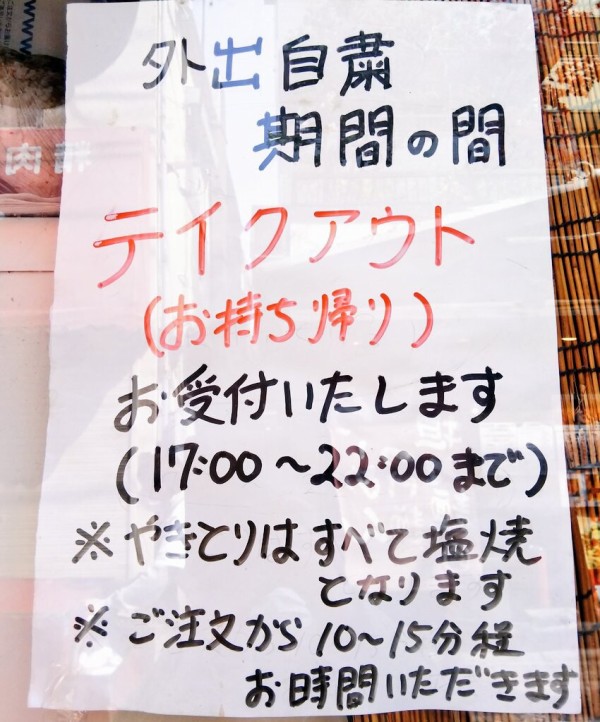 外出自粛
期間の間
テイクアウト
(お持ち帰り)
お受付いたします
(17:00〜22:00まで)
※やきとりはすべて塩焼
となります
※ご注文から10〜15分程
お時間いただきます